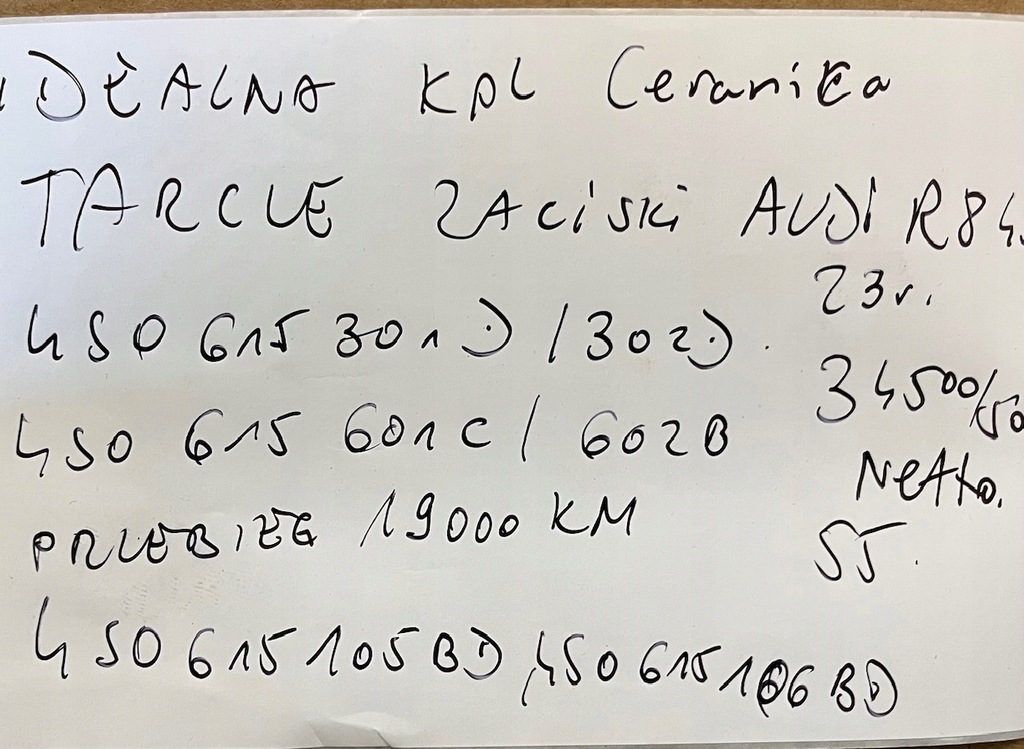 IDEALNA KPL CeramiKa
TARCZE ZACiSKi AUDi R8 4S
23r.
4S0 615 301D / 302D.
34500/50
4S0 615 601C / 602B
Netto.
PRZEBIEG 19000 KM
55.
4S0 615 105BD, 4S0 615 106BD